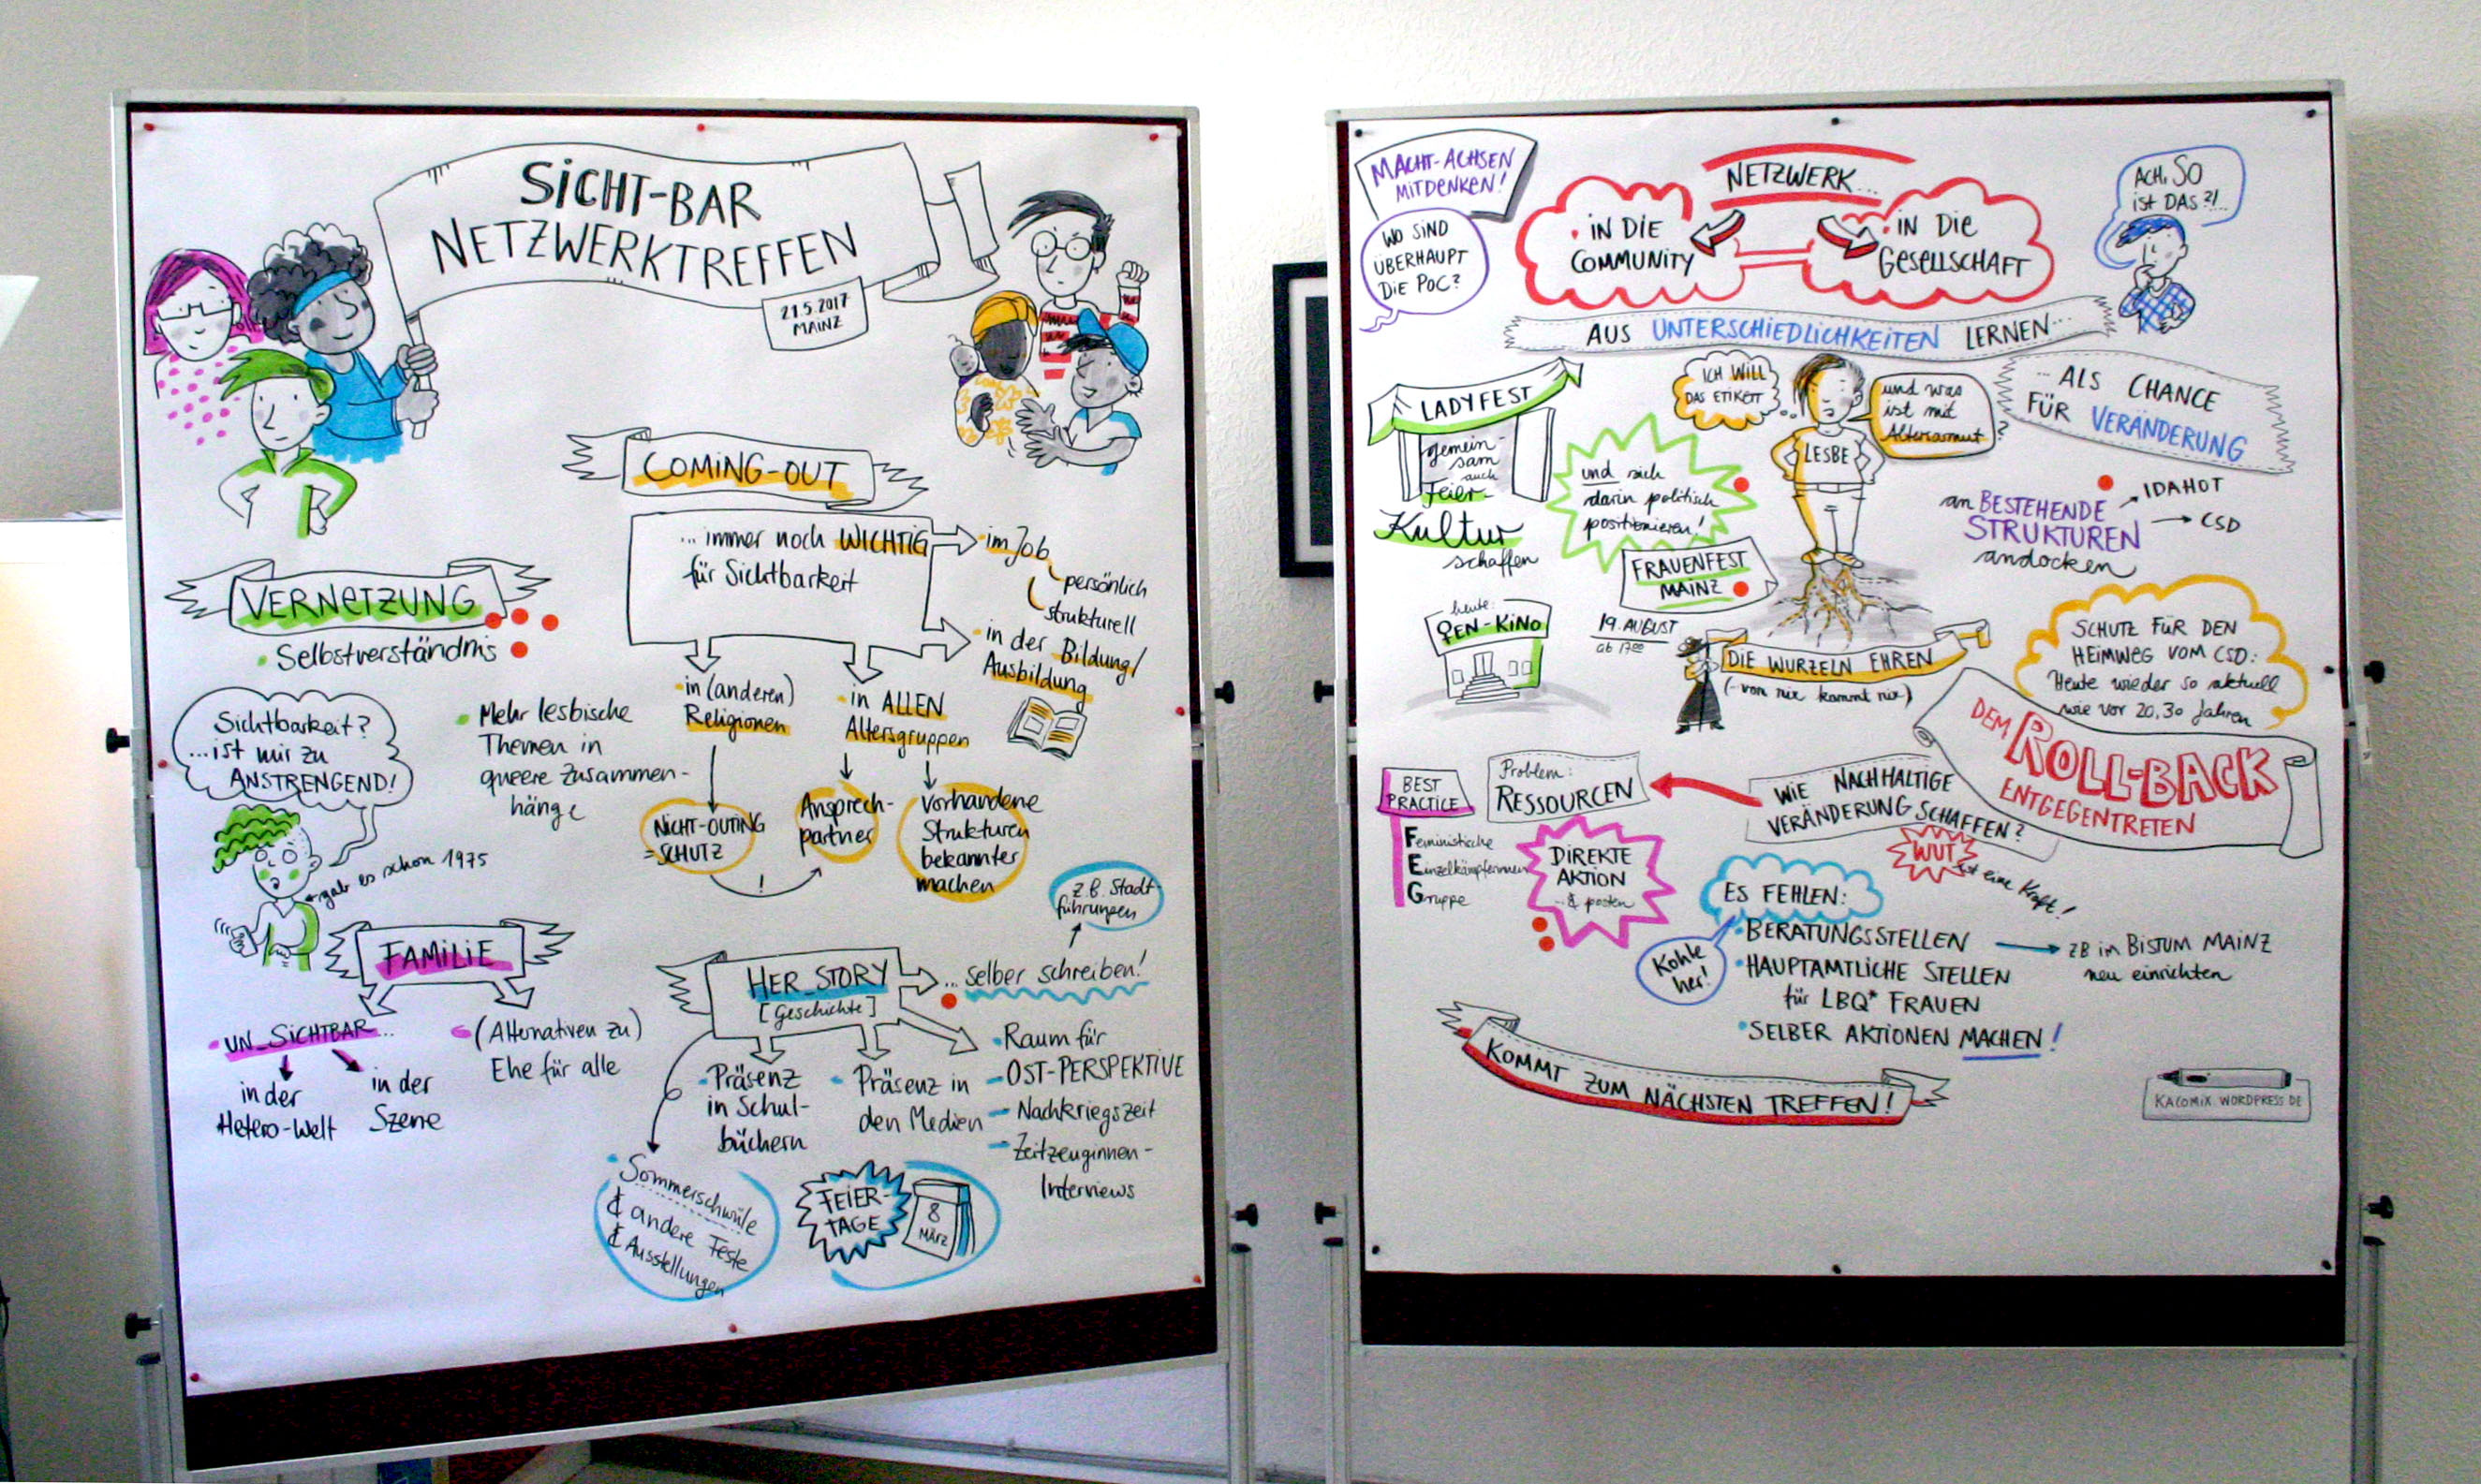 SICHT-BAR
NETZWERKTREFFEN
21.5.2017
MAINZ
COMING-OUT
...immer noch WICHTIG
für Sichtbarkeit
im Job
persönlich
strukturell
in der Bildung/
Ausbildung
in (anderen)
Religionen
in ALLEN
Altersgruppen
NICHT-OUTING
=SCHUTZ
!
Ansprech-
partner
vorhandene
Strukturen
bekannter
machen
VERNETZUNG
Selbstverständnis
Mehr lesbische
Themen in
queere Zusammen-
hänge
Sichtbarkeit?
...ist mir zu
ANSTRENGEND!
gab es schon 1975
FAMILIE
UN_SICHTBAR...
in der
Hetero-Welt
in der
Szene
(Alternativen zu)
Ehe für alle
HER_STORY
[Geschichte]
... selber schreiben!
z.B. Stadt-
führungen
Präsenz
in Schul-
büchern
Präsenz in
den Medien
Raum für
OST-PERSPEKTIVE
Nachkriegszeit
Zeitzeuginnen-
Interviews
Sommerschwüle
& andere Feste
& Ausstellungen
FEIER-
TAGE
8
MÄRZ
MACHT-ACHSEN
MITDENKEN!
WO SIND
ÜBERHAUPT
DIE POC?
NETZWERK...
IN DIE
COMMUNITY
IN DIE
GESELLSCHAFT
ACH, SO
IST DAS?!...
AUS UNTERSCHIEDLICHKEITEN LERNEN...
...ALS CHANCE
FÜR VERÄNDERUNG
LADYFEST
gemein-
sam
auch
Feier-
Kultur
schaffen
und sich
darin politisch
positionieren!
ICH WILL
DAS ETIKETT
und was
ist mit
Altersarmut?
LESBE
an BESTEHENDE
STRUKTUREN
andocken
IDAHOT
CSD
FRAUENFEST
MAINZ
19. AUGUST
ab 17⁰⁰
heute:
♀EN-KINO
DIE WURZELN EHREN
(-von nix kommt nix)
SCHUTZ FÜR DEN
HEIMWEG VOM CSD:
Heute wieder so aktuell
wie vor 20, 30 Jahren
DEM ROLL-BACK
ENTGEGENTRETEN
WIE NACHHALTIGE
VERÄNDERUNG SCHAFFEN?
Problem:
RESSOURCEN
BEST
PRACTICE
Feministische
Einzelkämpferinnen
Gruppe
DIREKTE
AKTION
...& posten
WUT
ist eine Kraft!
ES FEHLEN:
Kohle
her!
BERATUNGSSTELLEN
ZB im BISTUM MAINZ
neu einrichten
HAUPTAMTLICHE STELLEN
für LBQ* FRAUEN
SELBER AKTIONEN MACHEN!
KOMMT ZUM NÄCHSTEN TREFFEN!
KACOMIX.WORDPRESS.DE